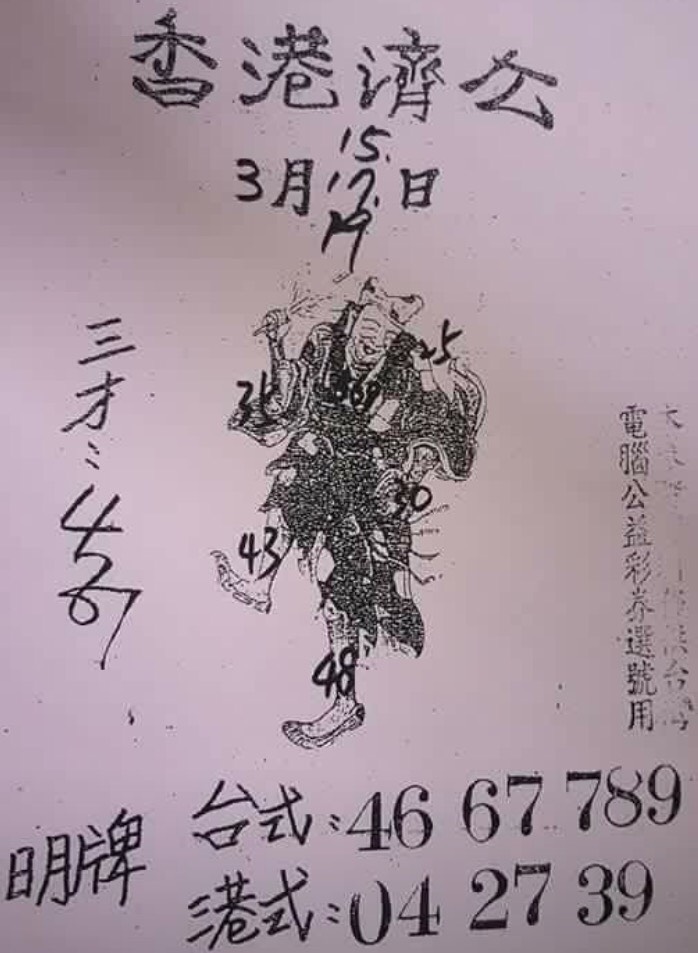 香港濟公
15.
3月17.日
19
三才:
4
6
7
25
35
369
30
43
48
電腦公益彩券選號用
台灣
明牌
台式:46 67 789
港式:04 27 39